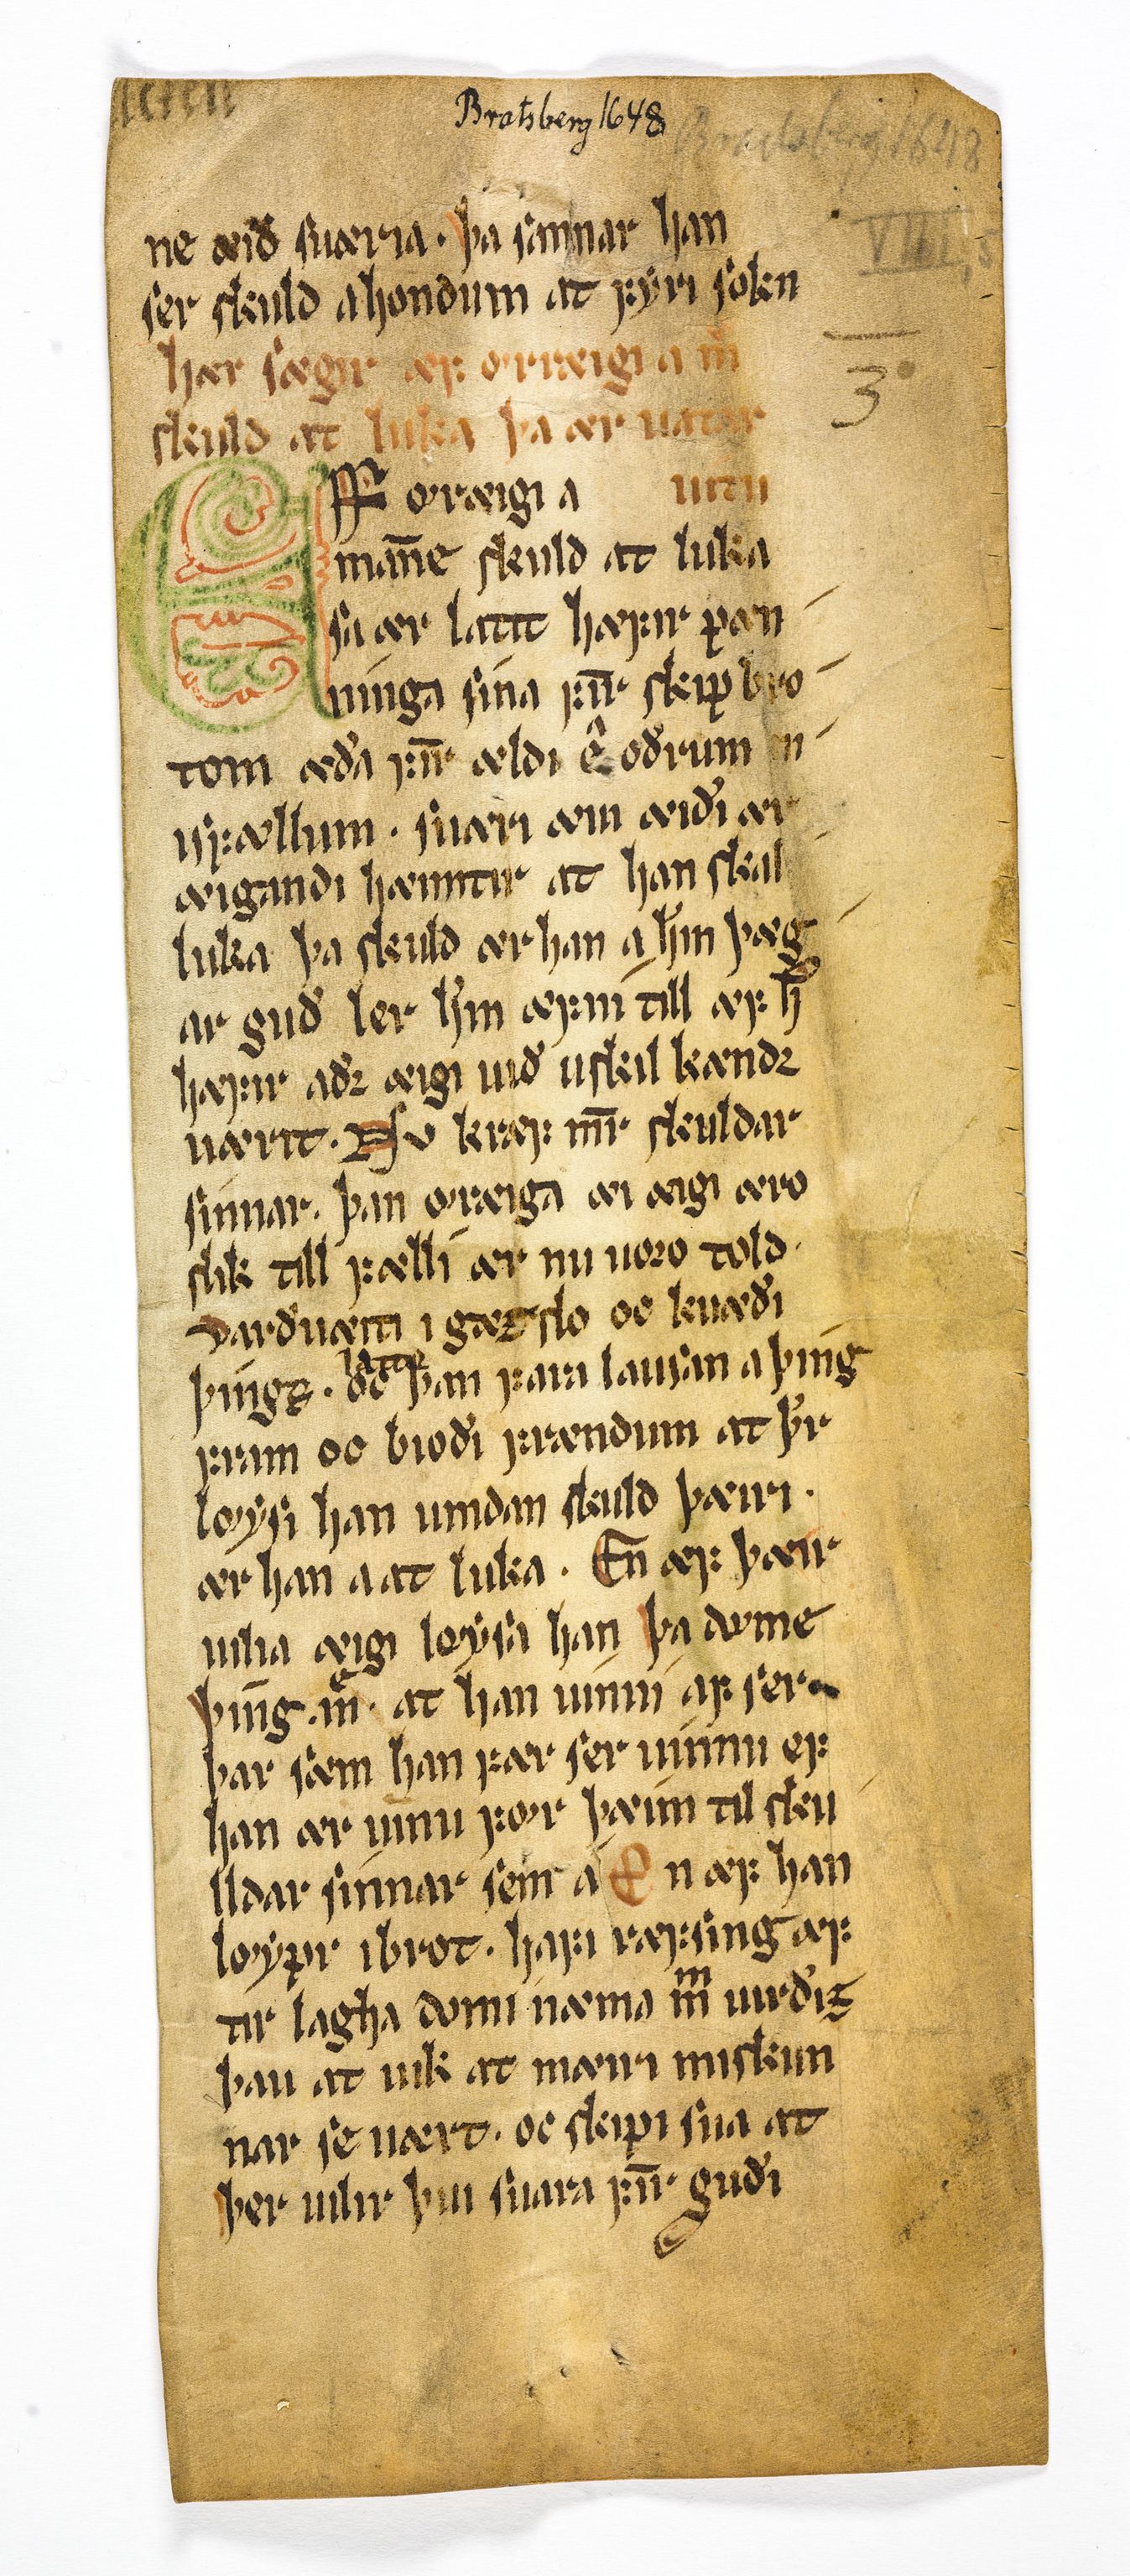 Bratsberg 1648
Bradsberg 1648
VIII, 5
3
ne æið suæria. þa sannar han
ser skuld a hondum at fyri sokn
hær sægir æf orræigi a m̅
skuld at luka þa ær uatar
Æf oræigi a uitu
man̅e skuld at luka
sa ær latit hæfir pæn
ninga sina firir skipbro
tom æða fir̅ ældi e oðrum m
isfællum. suæri æin æiði ær
æigandi hæimtir at han skal
luka þa skuld ær han a h̅m þæg
ar guð ler h̅m æfni till æf h̅
hæfir aðr æigi uið uskil kændr
uærit. Nv kræf m̅r skuldar
sinnar. þan oræiga æi æigi æro
slik till fælli ær nu uoro told.
varðuæiti i gæzslo oc kuæði
þings. oc latte þan fara lausan a þing
fram oc bioði frændum at þr̅
løysi han undan skuld þæiri.
ær han a at luka. En æf þæir
uilia æigi løysa han þa dome
þing.m̅. at han uinni af ser
þar sæm han fær ser uinnu ef
han ær uinnu før þæim til sku
lldar sinnar sem a En æf han
løypr ibrot. hafi ræfsing æf
tir lagha domi næma m̅m uirðiz
þau at uik at mæiri miskun
nar se uært. oc skipi sua at
þer uilir þui suara fir̅ guði